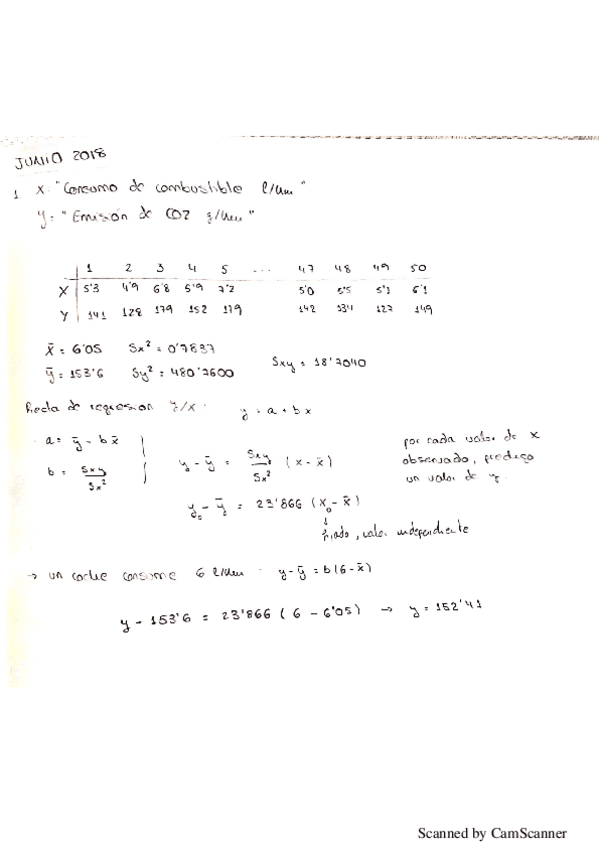 JUNIO 2018
1. X: "Consumo de combustible l/km"
Y: "Emisión de CO2 g/km"
1 2 3 4 5 ... 47 48 49 50
X 5'3 4'9 6'8 5'9 7'2 5'0 5'5 5'1 6'1
Y 141 128 179 152 179 142 134 127 149
x̄ = 6'05 Sx² = 0'7837
ȳ = 153'6 Sy² = 480'2600 Sxy = 18'7040
Recta de regresion y/x. y = a + bx
a = ȳ - b x̄
b = Sxy / Sx²
y₀ - ȳ = Sxy / Sx² (x - x̄)
por cada valor de x
observado, predigo
un valor de y.
y₀ - ȳ = 23'866 (x₀ - x̄)
↓
fijado, valor independiente
→ un coche consume 6 l/km . y - ȳ = b(6 - x̄)
y - 153'6 = 23'866 (6 - 6'05) → y = 152'41
Scanned by CamScanner